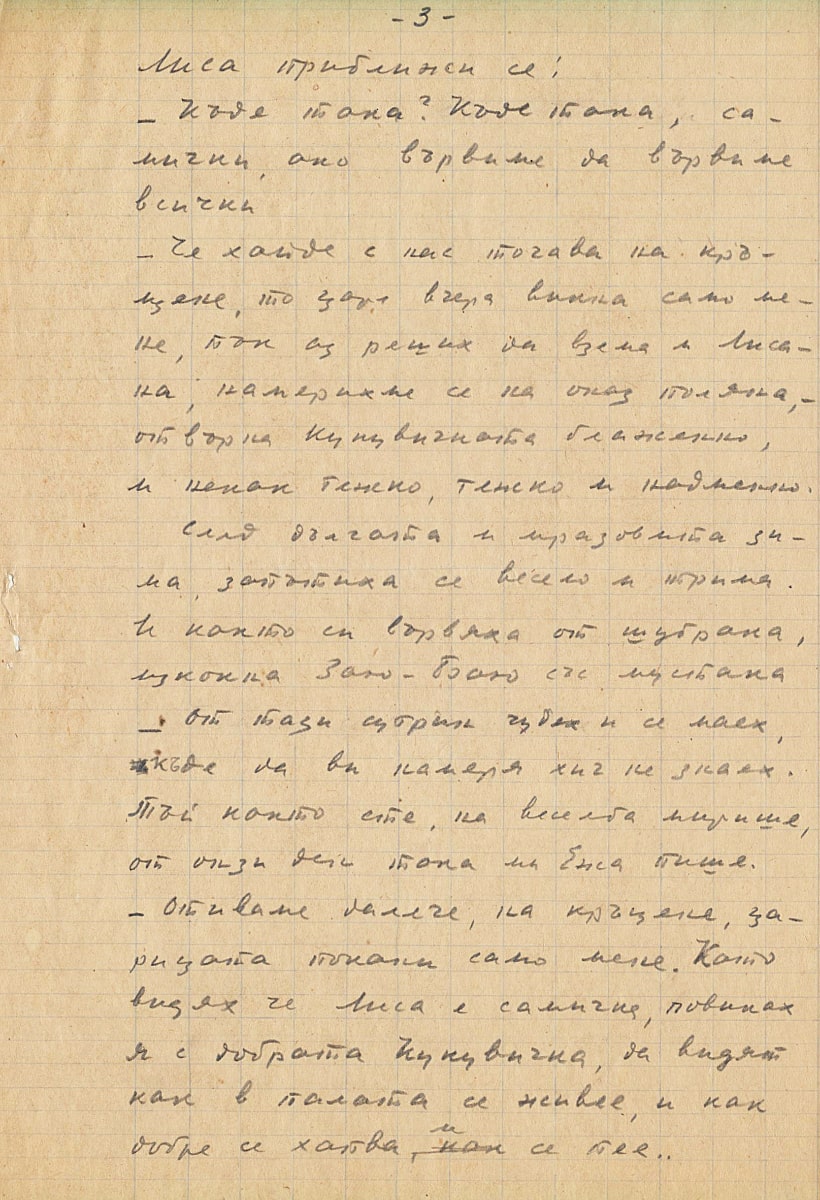 - 3 -
Лиса приближи се!
- Къде така? Къде така, са-
мички, ако вървиме да вървиме
всички
- Че хайде с нас тогава на кръ-
щене, то царя вчера викна само ме-
не, пък аз реших да взема и Лиса-
на, намерихме се на оназ поляна,-
отвърна Кукувичката блаженно,
и некак тежко, тежко и надменно.
След дългата и мразовита зи-
ма, запътиха се весело и трима.
И както си вървяха от шубрака,
изкокна Заю-Баю със мустака
- От тази сутрин чудех и се маех,
къде да ви намеря хич не знаех.
Тъй както сте, на веселба мирише,
от онзи ден така ми Ежа пише.
- Отиваме далече, на кръщене, ца-
рицата покани само мене. Като
видях че Лиса е самичка, повиках
я с добрата Кукувичка, да видят
как в палата се живее, и как
добре се хапва, и се пее..